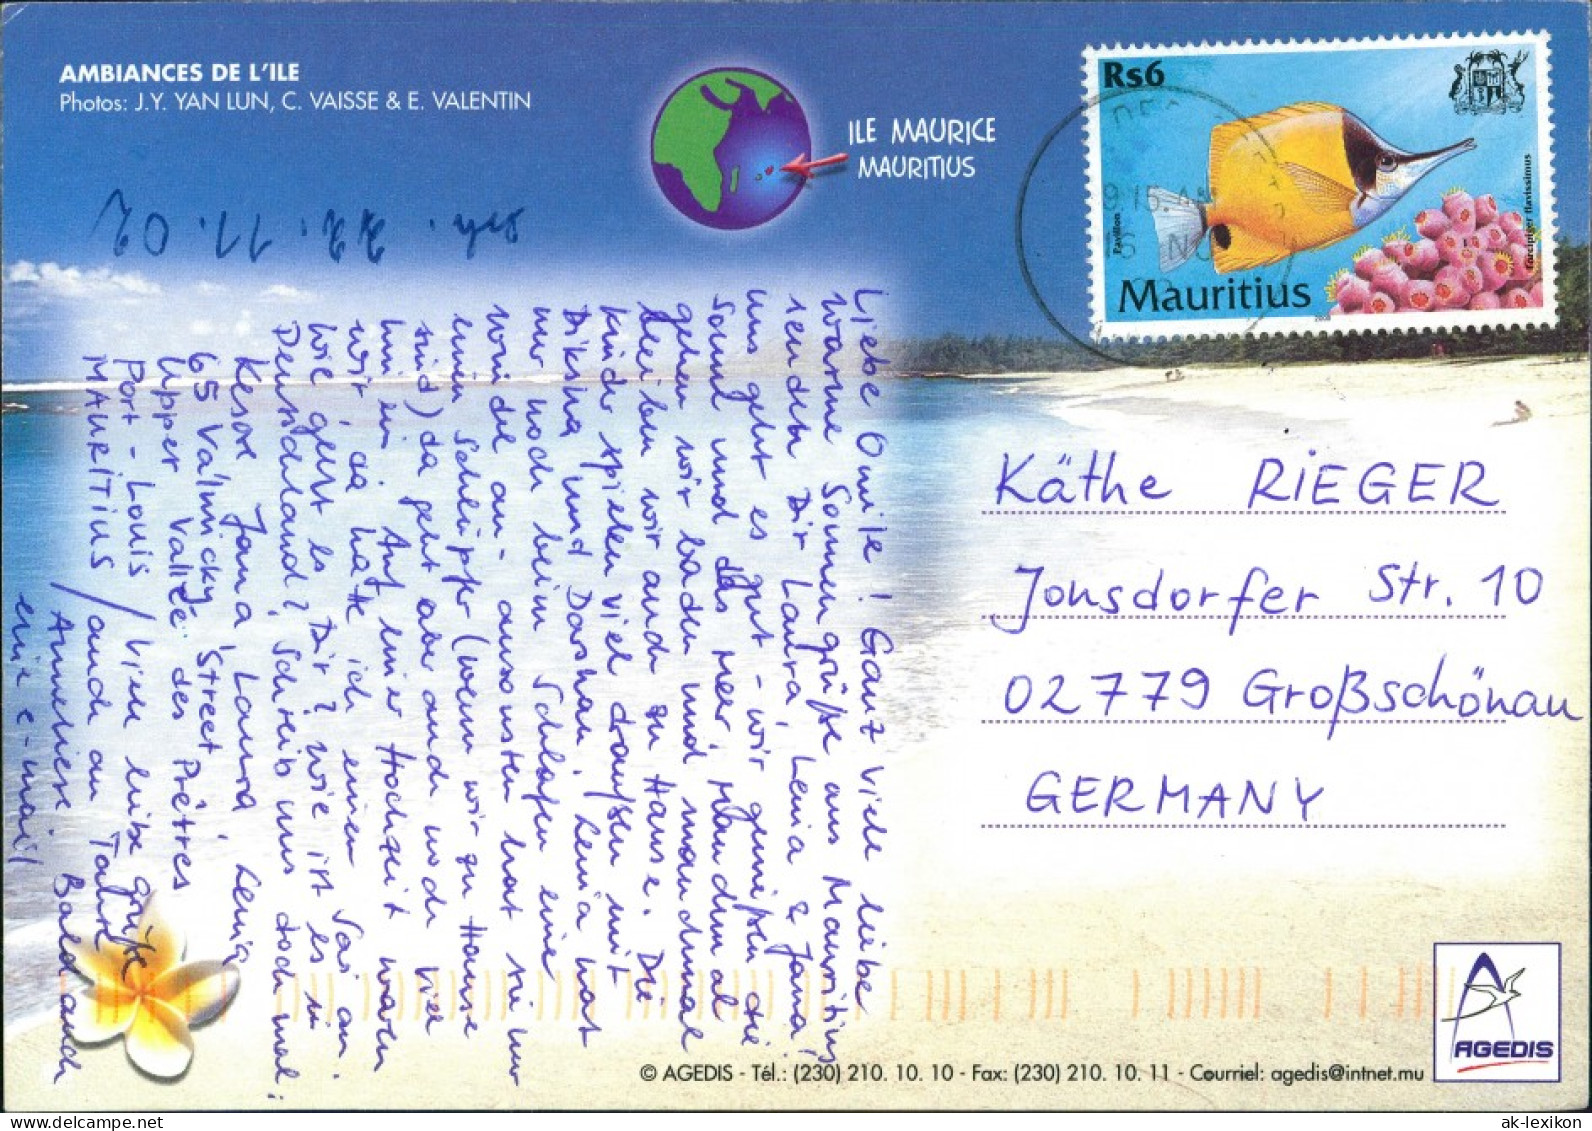 AMBIANCES DE L'ILE
Photos: J.Y. YAN LUN, C. VAISSE & E. VALENTIN
ILE MAURICE
MAURITIUS
Rs6
Pavillon
Forcipiger flavissimus
Mauritius
9.15.AM
22.11.02
Liebe Omi Ke! Ganz viele liebe
warme Sonnengrüße aus Mauritius
senden Dir Laura, Lenia & Jana!
Uns geht es gut - wir genießen die
Sonne und das Meer. Manchmal
gehen wir baden und manchmal
bleiben wir auch zu Hause. Die
Kinder spielen viel draußen mit
Diksha und Darshan. Lenia hat
nur noch beim Schlafen eine
Windel an - ansonsten hat sie nur
einen Schlüpfer (wenn wir zu Hause
sind) da geht aber auch noch viel
hinein. Auf einer Hochzeit waren
wir da hatte ich einen Sari an.
Wie geht es Dir? Wie ist es in
Deutschland? Schreib uns doch mal:
Kesor Jana, Laura, Lenia
65 Valmicky Street
Upper Vallée des Prêtres
Port-Louis / Viele liebe Grüße
MAURITIUS / auch an Tante
Anneliese Bald auch
eine e-mail
Käthe RIEGER
Jonsdorfer Str. 10
02779 Großschönau
GERMANY
AGEDIS
© AGEDIS - Tél.: (230) 210. 10. 10 - Fax: (230) 210. 10. 11 - Courriel: agedis@intnet.mu
ak-lexikon